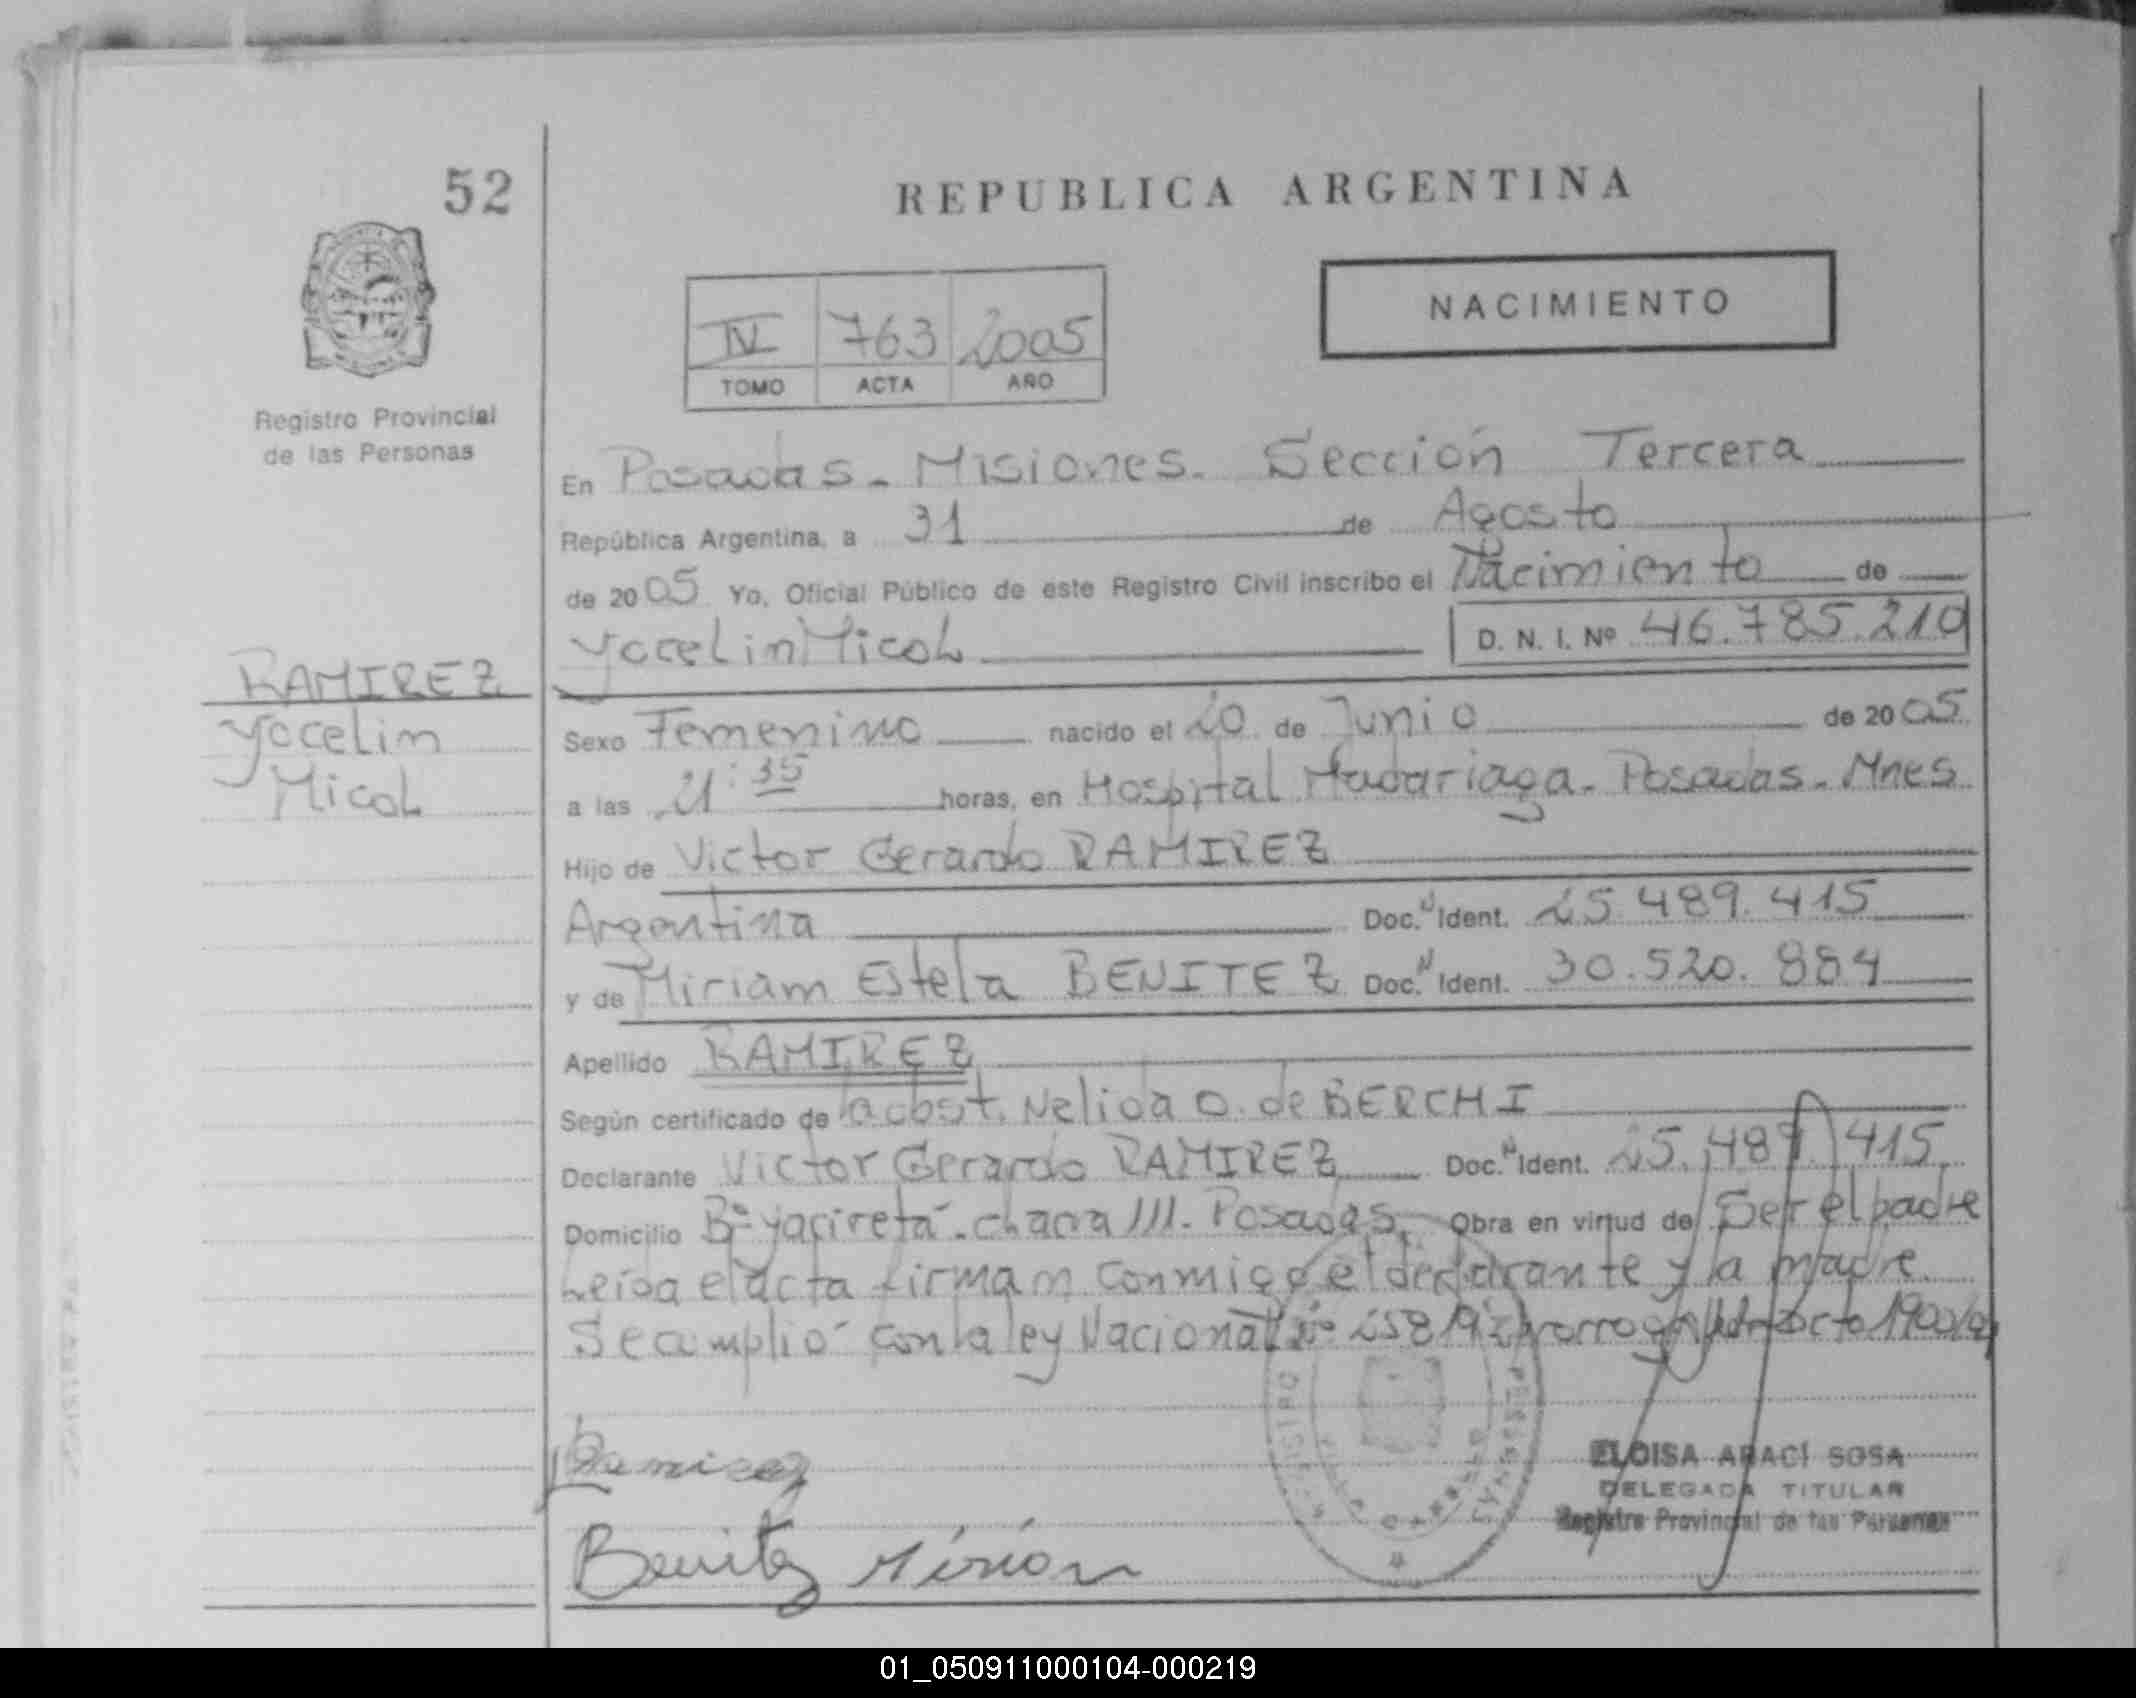 52
REPUBLICA ARGENTINA
NACIMIENTO
IV 763 2005
TOMO ACTA AÑO
Registro Provincial
de las Personas
En Posadas - Misiones. Sección Tercera
República Argentina, a 31 de Agosto
de 2005 Yo, Oficial Público de este Registro Civil inscribo el Nacimiento de
Yocelin Micol D. N. I. Nº 46.785.210
RAMIREZ
Yocelim
Micol
Sexo Femenino nacido el 20 de Junio de 2005
a las 21:35 horas, en Hospital Madariaga - Posadas - Mnes
Hijo de Victor Gerardo RAMIREZ
Argentina Doc. N Ident. 25.489.415
y de Miriam Estela BENITEZ Doc. N Ident. 30.520.884
Apellido RAMIREZ
Según certificado de la obst. Nelida O. de BERCHI
Declarante Victor Gerardo RAMIREZ Doc. N Ident. 25.489.415
Domicilio Bº Yaciretá - chacra 111 - Posadas. Obra en virtud de Ser el padre
Leida el acta firman conmigo el declarante y la madre
Se cumplió con la ley Nacional nº 25819
Ramirez
Benitez Mirian
ELOISA ARACÍ SOSA
DELEGADA TITULAR
Registro Provincial de las Personas
01_050911000104-000219